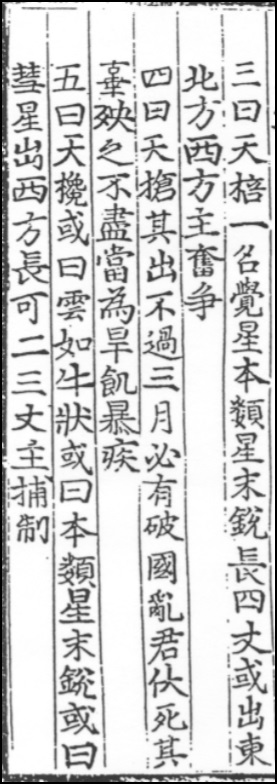 三曰天棓一名覺星本類星末銳長四丈或出東
北方西方主奮爭
四曰天搶其出不過三月必有破國亂君伏死其
辜殃之不盡當為旱飢暴疾
五曰天欃或曰雲如牛狀或曰本類星末銳或曰
彗星出西方長可二三丈主捕制